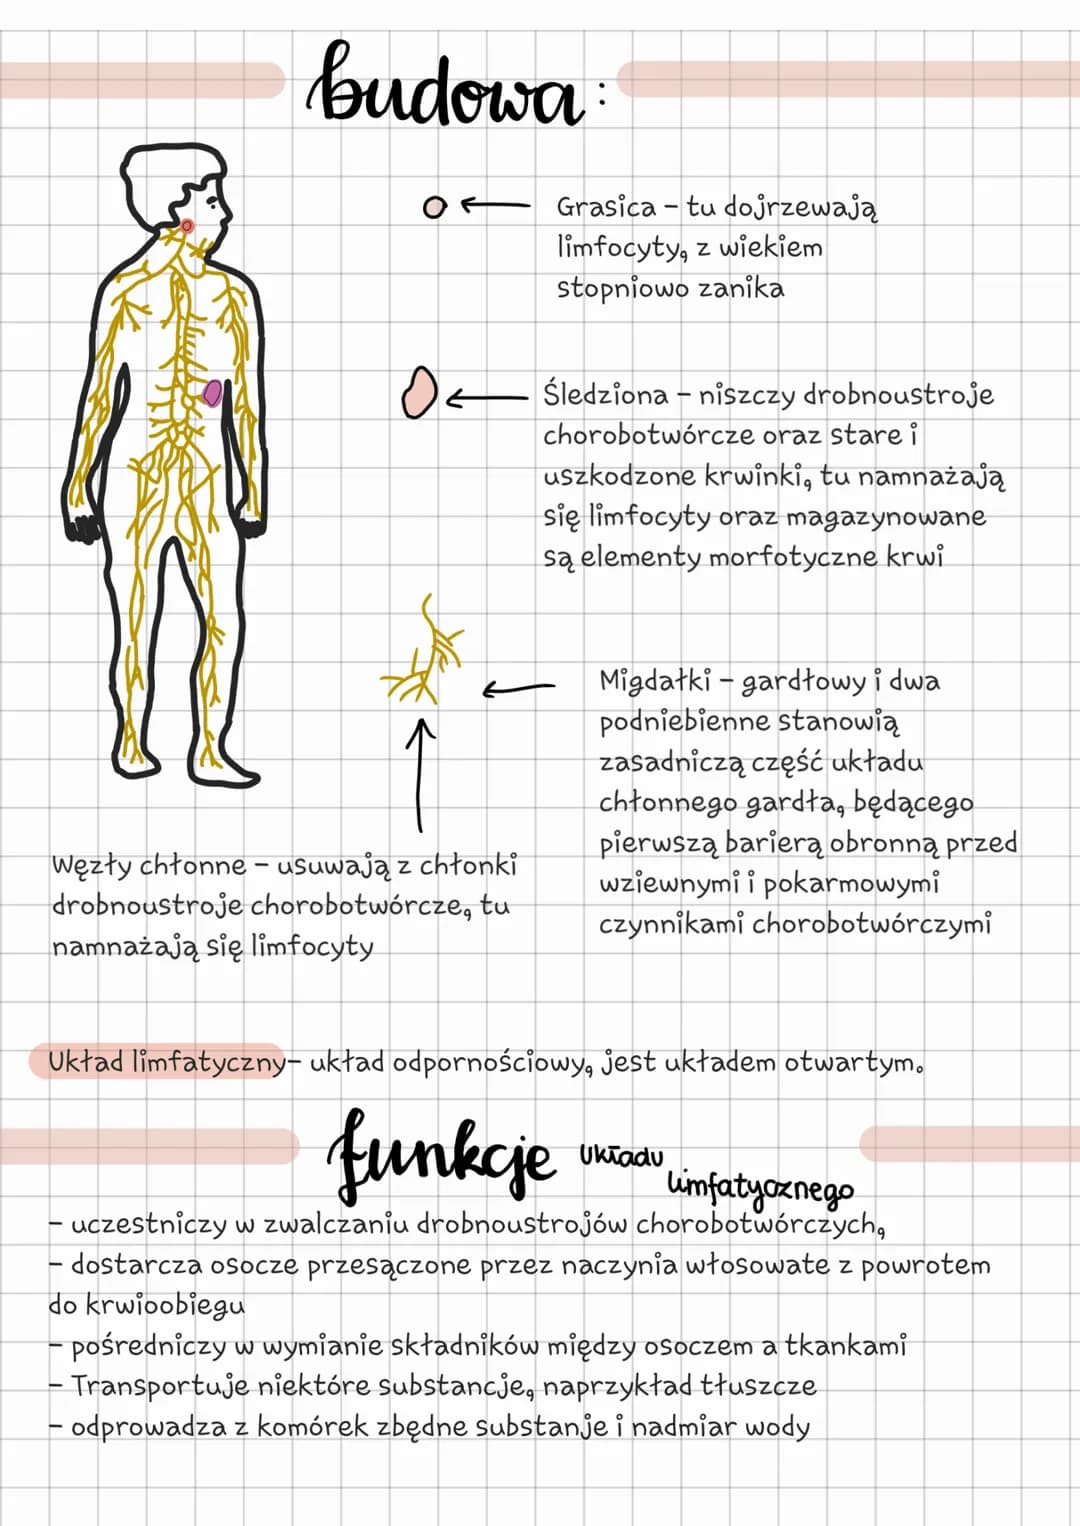 budowa:
Grasica – tu dojrzewają
limfocyty, z wiekiem
stopniowo zanika
Śledziona – niszczy drobnoustroje
chorobotwórcze oraz stare i
uszkodzone krwinki, tu namnażają
się limfocyty oraz magazynowane
są elementy morfotyczne krwi
Migdałki – gardłowy i dwa
podniebienne stanowią
zasadniczą część układu
chłonnego gardła, będącego
pierwszą barierą obronną przed
wziewnymi i pokarmowymi
czynnikami chorobotwórczymi
Węzły chłonne – usuwają z chłonki
drobnoustroje chorobotwórcze, tu
namnażają się limfocyty
Układ limfatyczny– układ odpornościowy, jest układem otwartym.
funkcje układu
limfatycznego
– uczestniczy w zwalczaniu drobnoustrojów chorobotwórczych,
– dostarcza osocze przesączone przez naczynia włosowate z powrotem
do krwioobiegu
– pośredniczy w wymianie składników między osoczem a tkankami
– Transportuje niektóre substancje, naprzykład tłuszcze
– odprowadza z komórek zbędne substanje i nadmiar wody